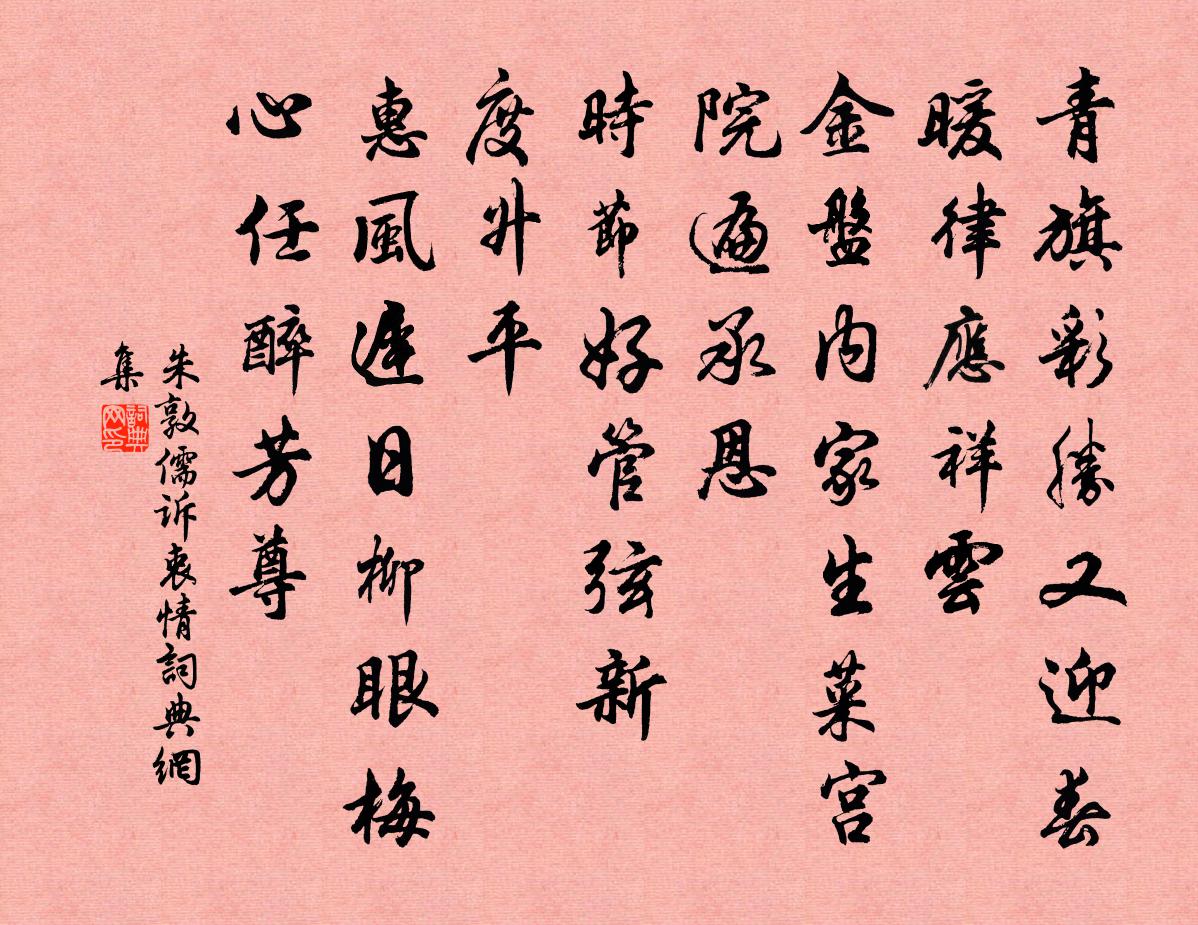 青旗彩勝又迎春
暖律應祥雲
金盤內家生菜宮
院遍承恩
時節好管弦新
度升平
惠風遲日柳眼梅
心任醉芳尊
朱敦儒訴衷情詞典網
集
詞典
网印